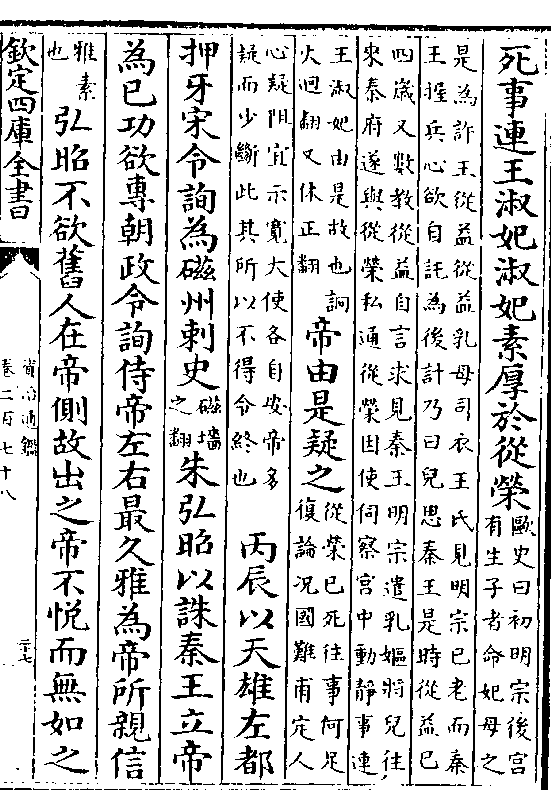 死事連王淑妃淑妃素厚於從榮
歐史曰初明宗後宮
有生子者命妃母之
是為許王從益從益乳母司衣王氏見明宗已老而秦
王握兵心欲自託為後計乃曰兒思秦王是時從益已
四歲又數教從益自言求見秦王明宗遣乳嫗將兒往
來秦府遂與從榮私通從榮因使伺察宮中動靜事連
王淑妃由是故也詗
火迥翻又休正翻
帝由是疑之
從榮已死往事何足
復論況國難甫定人
心疑阻宜示寛大使各自安帝多
疑而少斷此其所以不得令終也
丙辰以天雄左都
押牙宋令詢為磁州刺史
磁墻
之翻
朱弘昭以誅秦王立帝
為已功欲專朝政令詢侍帝左右最久雅為帝所親信
雅素
也
弘昭不欲舊人在帝側故出之帝不悅而無如之
欽定四庫全書
資治通鑑
卷二百七十八
二十七